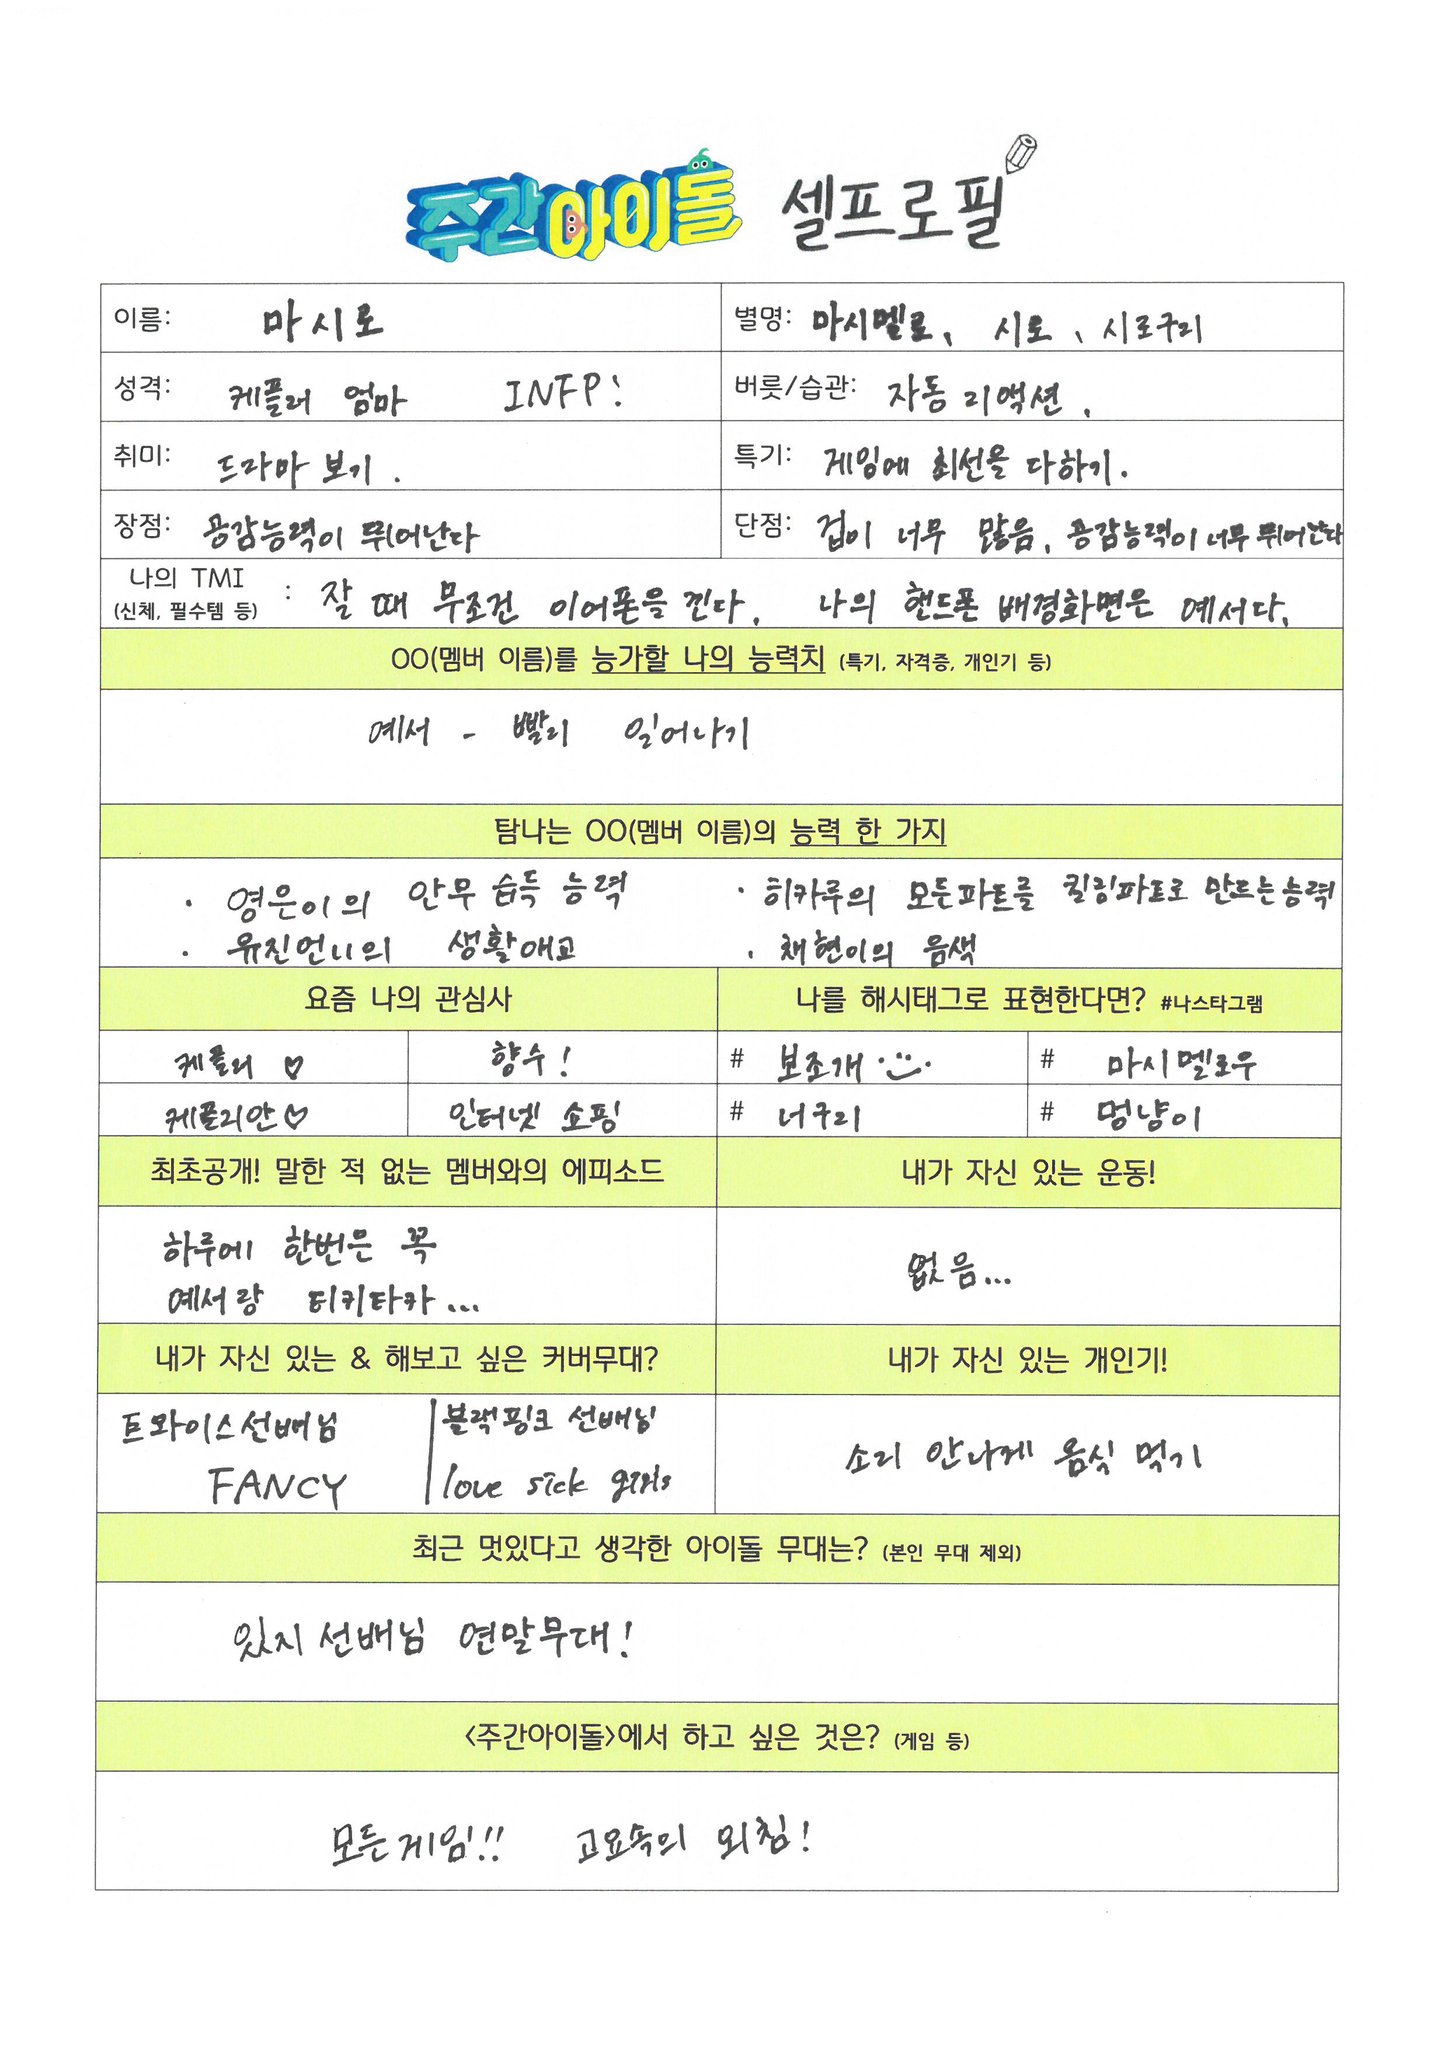 주간아이돌 셀프로필
이름: 마시로
별명: 마시멜로, 시로, 시로구리
성격: 케플러 엄마 INFP!
버릇/습관: 자동 리액션.
취미: 드라마 보기.
특기: 게임에 최선을 다하기.
장점: 공감능력이 뛰어난다
단점: 겁이 너무 많음, 공감능력이 너무 뛰어난다
나의 TMI
(신체, 필수템 등) : 잘 때 무조건 이어폰을 낀다. 나의 핸드폰 배경화면은 예서다.
OO(멤버 이름)를 능가할 나의 능력치 (특기, 자격증, 개인기 등)
예서 - 빨리 일어나기
탐나는 OO(멤버 이름)의 능력 한 가지
· 영은이의 안무 습득 능력
· 히카루의 모든파트를 킬링파트로 만드는 능력
· 유진언니의 생활애교
· 채현이의 음색
요즘 나의 관심사
나를 해시태그로 표현한다면? #나스타그램
케플러 ♡
향수!
# 보조개
# 마시멜로우
케플리안♡
인터넷 쇼핑
# 너구리
# 멍냥이
최초공개! 말한 적 없는 멤버와의 에피소드
내가 자신 있는 운동!
하루에 한번은 꼭
예서랑 티키타카...
없음...
내가 자신 있는 & 해보고 싶은 커버무대?
내가 자신 있는 개인기!
트와이스선배님
FANCY
블랙핑크 선배님
love sick girls
소리 안나게 음식 먹기
최근 멋있다고 생각한 아이돌 무대는? (본인 무대 제외)
있지 선배님 연말무대!
<주간아이돌>에서 하고 싶은 것은? (게임 등)
모든게임!! 고요속의 외침!